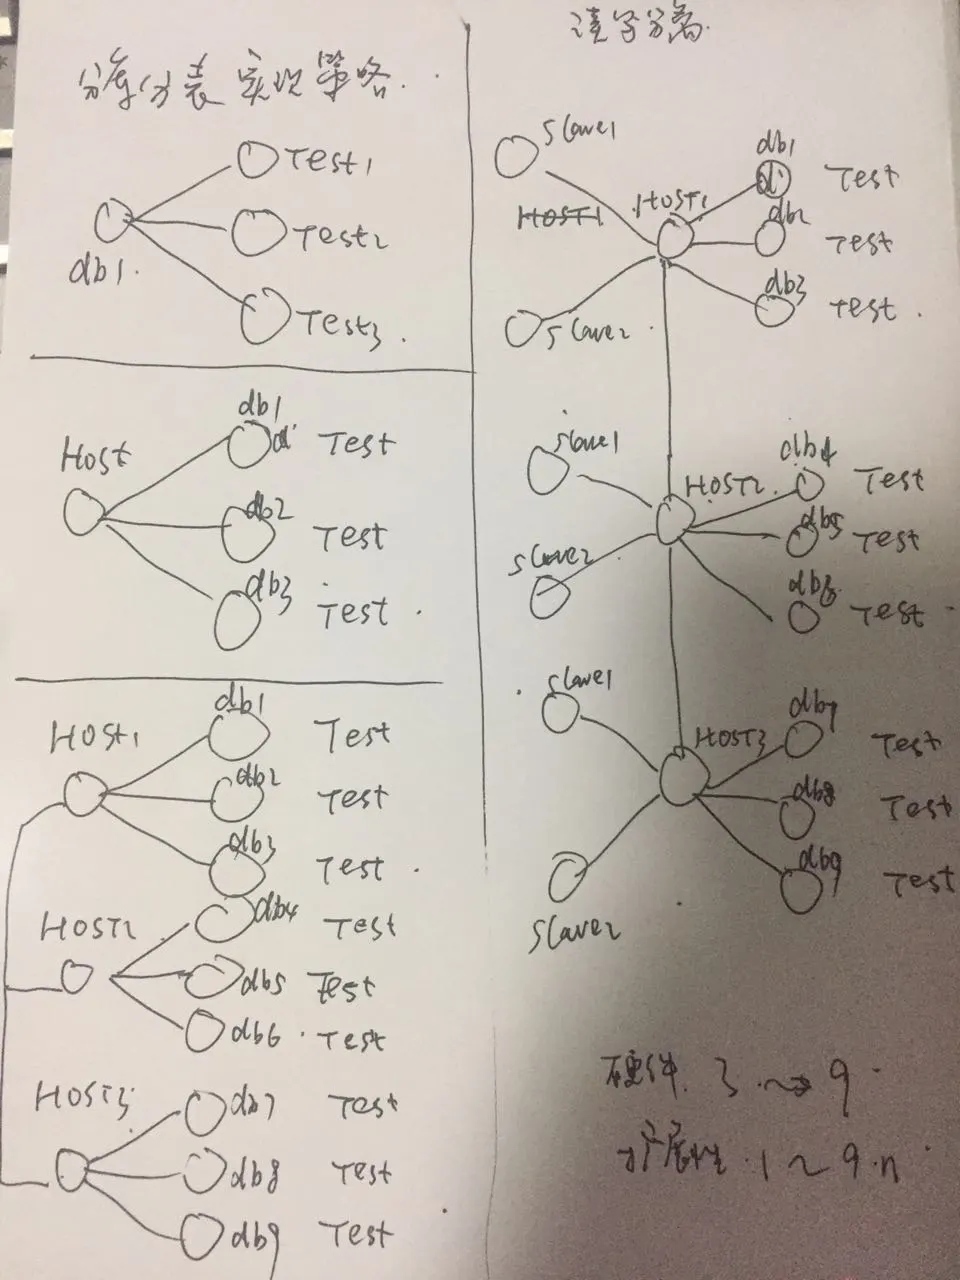 分库分表 实现策略.
Test1
Test2
db1.
Test3.
db1
Host
Test
db2
Test
db3
Test.
db1
HOST1
Test
db2
Test
db3
Test.
HOST2
db4
Test
db5
Test
db6.
Test
HOST3
db7
Test
db8
Test
db9
Test
读写分离
slave1
db1
Test
HOST1
HOST1
db2
Test
db3
Test.
slave2
slave1
db4
HOST2.
Test
db5
Test
slave2
db6
Test
slave1
db7
HOST3
Test
db8
Test
db9
Test
slave2
硬件. 3 ~> 9.
扩展性. 1 ~ 9.n